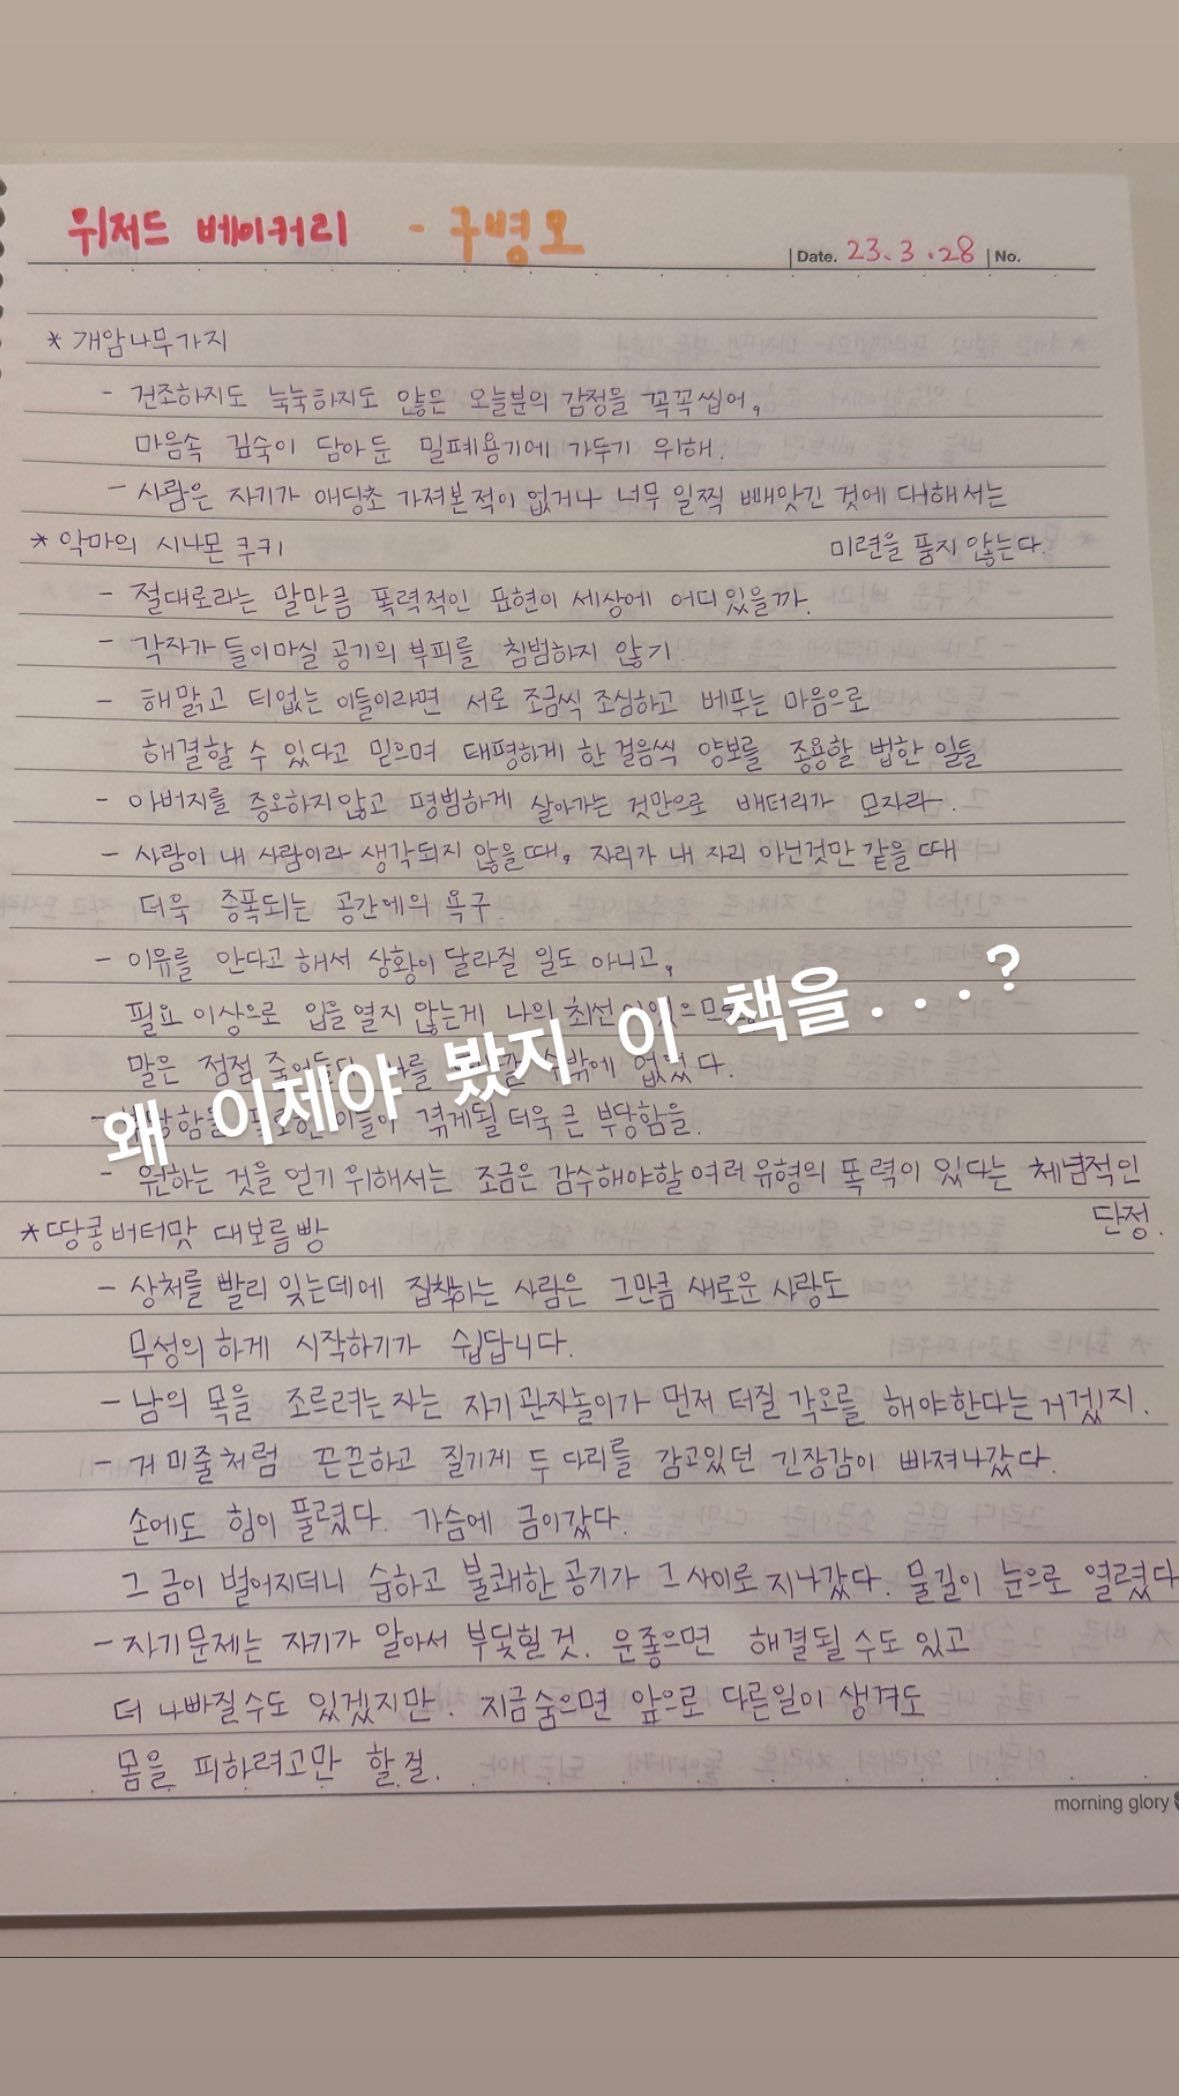 위저드 베이커리 - 구병모
Date. 23.3.28 No.
* 개암나무가지
- 건조하지도 눅눅하지도 않은 오늘분의 감정을 꼭꼭씹어,
마음속 깊숙이 담아둔 밀폐용기에 가두기 위해.
- 사람은 자기가 애당초 가져본적이 없거나 너무 일찍 빼앗긴 것에 대해서는
미련을 품지 않는다.
* 악마의 시나몬 쿠키
- 절대로라는 말만큼 폭력적인 표현이 세상에 어디있을까.
- 각자가 들이마실 공기의 부피를 침범하지 않기
- 해맑고 티없는 이들이라면 서로 조금씩 조심하고 베푸는 마음으로
해결할 수 있다고 믿으며 태평하게 한 걸음씩 양보를 종용할 법한 일들
- 아버지를 증오하지않고 평범하게 살아가는 것만으로 배터리가 모자라.
- 사람이 내 사람이라 생각되지 않을때, 자리가 내 자리 아닌것만 같을 때
더욱 증폭되는 공간에의 욕구.
- 이유를 안다고 해서 상황이 달라질 일도 아니고,
필요 이상으로 입을 열지 않는게 나의 최선
말은 점점 밖에 없었다.
왜 이제야 봤지 이 책을....?
겪게될 더욱 큰 부당함을.
- 원하는 것을 얻기 위해서는 조금은 감수해야할 여러 유형의 폭력이 있다는 체념적인
단정.
* 땅콩버터맛 대보름빵
- 상처를 빨리 잊는데에 집착하는 사람은 그만큼 새로운 사랑도
무성의 하게 시작하기가 쉽답니다.
- 남의 목을 조르려는 자는 자기 관자놀이가 먼저 터질 각오를 해야한다는 거겠지.
- 거미줄처럼 끈끈하고 질기게 두 다리를 감고있던 긴장감이 빠져나갔다.
손에도 힘이 풀렸다. 가슴에 금이갔다.
그 금이 벌어지더니 습하고 불쾌한 공기가 그 사이로 지나갔다. 물길이 눈으로 열렸다
- 자기문제는 자기가 알아서 부딪힐 것. 운좋으면 해결될 수도 있고
더 나빠질수도 있겠지만. 지금숨으면 앞으로 다른일이 생겨도
몸을 피하려고만 할 걸.
morning glory